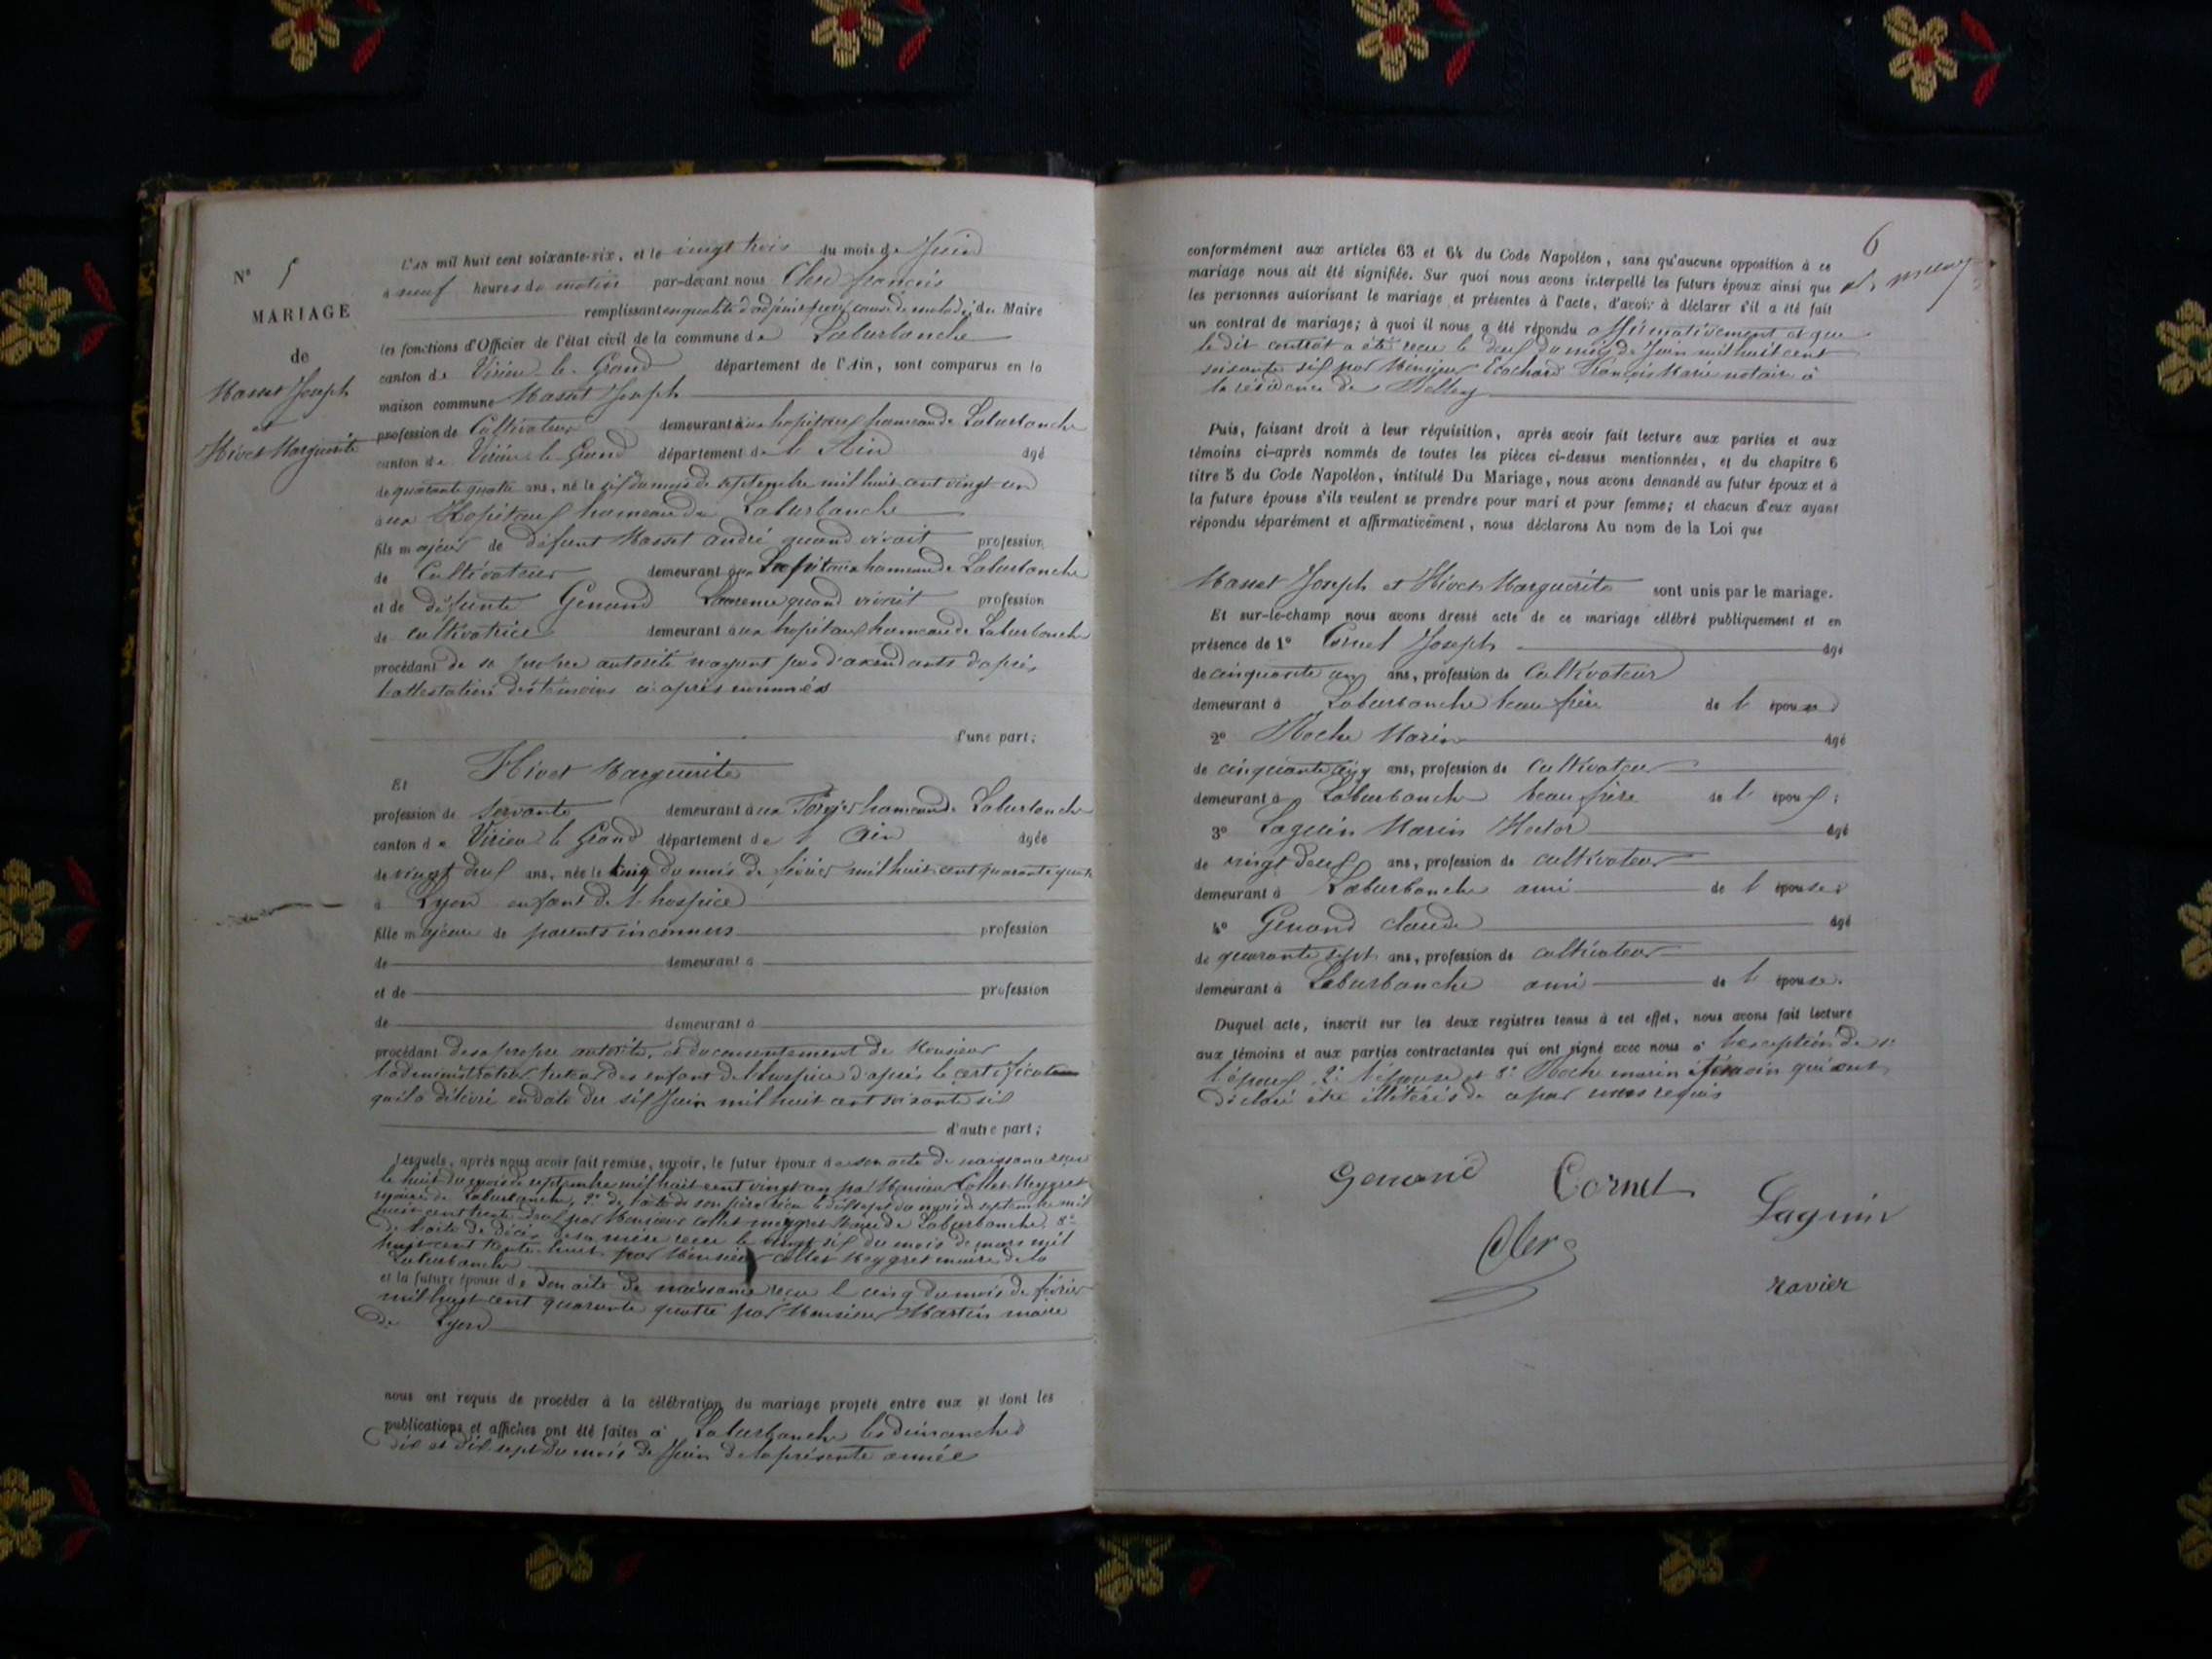 N° 5
MARIAGE
de
Masset Joseph
et
Hivert Marguerite
L'an mil huit cent soixante-six, et le vingt trois du mois de Juin
à neuf heures du matin par-devant nous Clerc françois
remplissant en qualité d'adjoint pour cause de maladie du Maire
les fonctions d'Officier de l'état civil de la commune de Laburbanche
canton de Virieu le Grand département de l'Ain, sont comparus en la
maison commune Masset Joseph
profession de Cultivateur demeurant aux hopitaux hameau de Laburbanche
canton de Virieu le Grand département de l'Ain âgé
de quarante quatre ans, né le six du mois de septembre mil huit cent vingt un
aux Hopitaux hameau de Laburbanche
fils majeur de défunt Masset andré quand vivait profession
de Cultivateur demeurant aux hopitaux hameau de Laburbanche
et de défunte Genand Laurence quand vivait profession
de cultivatrice demeurant aux hopitaux hameau de Laburbanche
procédant de sa propre autorité n'ayant pas d'axendants d'après
l'attestation des témoins ci après nommés
d'une part;
Et Hivert Marguerite
profession de Servante demeurant aux Forges hameau de Laburbanche
canton de Virieu le Grand département de l'Ain âgée
de vingt deux ans, née le cinq du mois de févier mil huit cent quarante quatre
à Lyon enfant de l'hospice
fille majeure de parents inconnus profession
de demeurant à
et de profession
de demeurant à
procédant de sa propre autorité, et du consentement de Monsieur
l'administrateur tuteur des enfant de l'hospice d'après le certificat
qu'il a délivré en date du six Juin mil huit cent soixante six
d'autre part;
Lesquels, après nous avoir fait remise, savoir, le futur époux de son acte de naissance reçu
le huit du mois de septembre mil huit cent vingt un par Monsieur Collet Meygret
maire de Laburbanche, 2° de l'acte de son père reçu le dix sept du mois de septembre mil
huit cent trente deux par Monsieur collet meygret Maire de Laburbanche 3°
de l'acte de décès de sa mère reçu le vingt six du mois de mars mil
huit cent trente huit par Monsieur collet Meygret maire de la
Laburbanche
et la future épouse de son acte de naissance reçu le cinq du mois de févier
mil huit cent quarante quatre par Monsieur Martin maire
de Lyon
nous ont requis de procéder à la célébration du mariage projeté entre eux et dont les
publications et affiches ont été faites à Laburbanche les dimanches
dix et dix sept du mois de Juin de la présente année
6
conformément aux articles 63 et 64 du Code Napoléon, sans qu'aucune opposition à ce
mariage nous ait été signifiée. Sur quoi nous avons interpellé les futurs époux ainsi que
les personnes autorisant le mariage et présentes à l'acte, d'avoir à déclarer s'il a été fait
un contrat de mariage; à quoi il nous a été répondu affirmativement et que
le dit contrat a été reçu le deux du mois de Juin mil huit cent
soixante six par Monsieur Ecochard François Marie notaire à
la résidence de Belley
Puis, faisant droit à leur réquisition, après avoir fait lecture aux parties et aux
témoins ci-après nommés de toutes les pièces ci-dessus mentionnées, et du chapitre 6
titre 5 du Code Napoléon, intitulé Du Mariage, nous avons demandé au futur époux et à
la future épouse s'ils veulent se prendre pour mari et pour femme; et chacun d'eux ayant
répondu séparément et affirmativement, nous déclarons Au nom de la Loi que
Masset Joseph et Hivert Marguerite sont unis par le mariage.
Et sur-le-champ nous avons dressé acte de ce mariage célébré publiquement et en
présence de 1° Cornet Joseph âgé
de cinquante un ans, profession de Cultivateur
demeurant à Laburbanche beau frère de l'époux
2° Roche Marin âgé
de cinquante ans, profession de Cultivateur
demeurant à Laburbanche beau frère de l'époux;
3° Laguin Marin Hector âgé
de vingt deux ans, profession de cultivateur
demeurant à Laburbanche ami de l'épouse;
4° Genand claude âgé
de quarante sept ans, profession de cultivateur
demeurant à Laburbanche ami de l'épouse.
Duquel acte, inscrit sur les deux registres tenus à cet effet, nous avons fait lecture
aux témoins et aux parties contractantes qui ont signé avec nous à l'exception de 1°
l'époux 2° l'épouse et 3° Roche marin témoin qui ont
déclaré être illétérés de ce par nous requis
Genand Cornet Laguin
Clerc
ravier